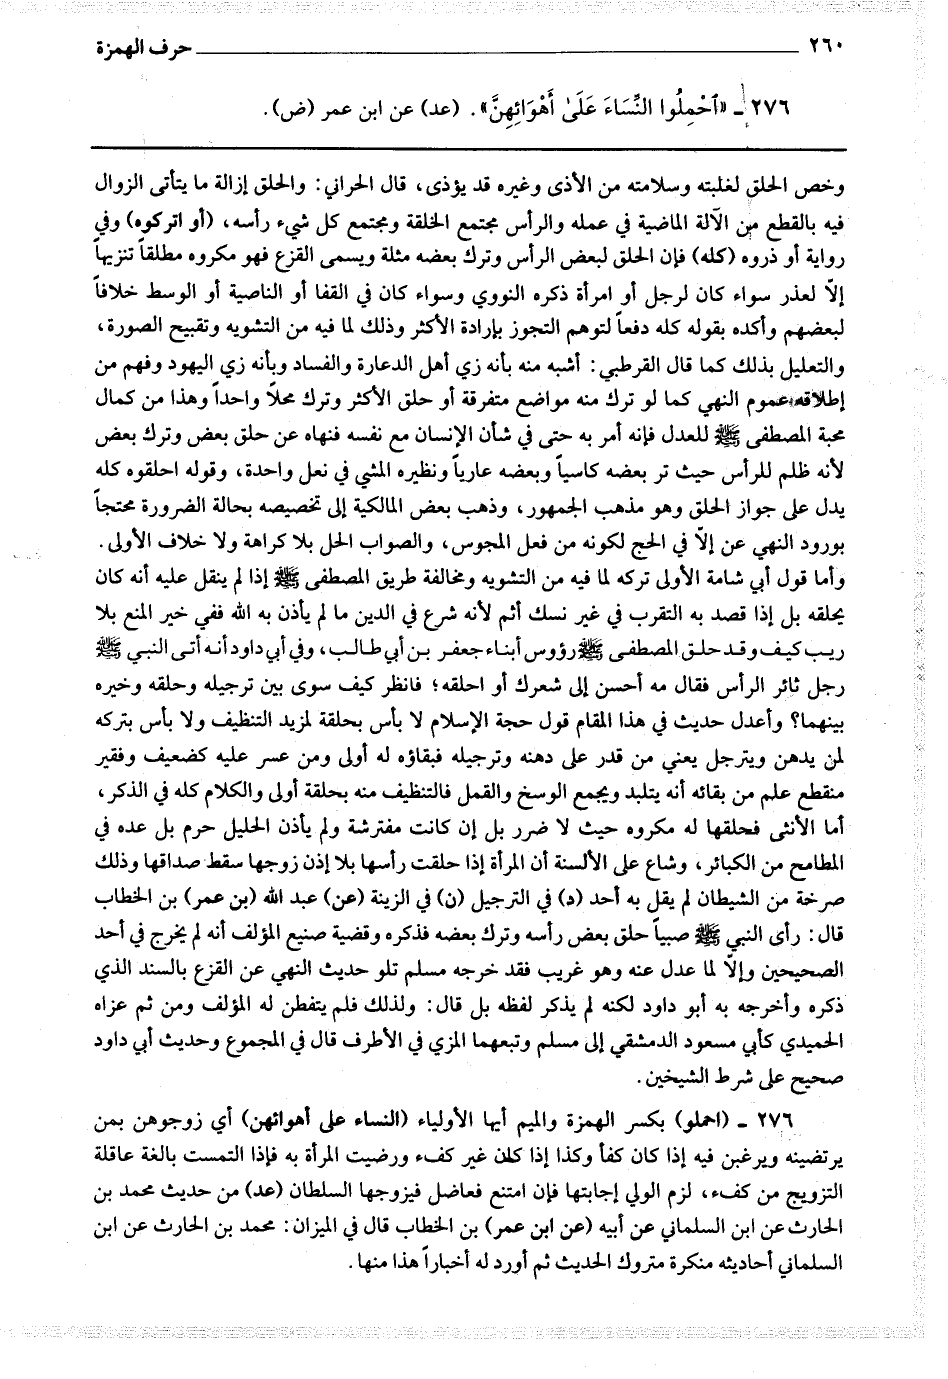 ٢٦٠ ــــــــــــــــــــ حرف الهمزة
٢٧٦ ـ «ٱحْمِلُوا النِّسَاءَ عَلَىٰ أَهْوَائِهِنَّ». (عد) عن ابن عمر (ض).
وخص الحلق لغلبته وسلامته من الأذى وغيره قد يؤذى، قال الحراني: والحلق إزالة ما يتأتى الزوال
فيه بالقطع من الآلة الماضية في عمله والرأس مجتمع الخلقة ومجتمع كل شيء رأسه، (أو اتركوه) وفي
رواية أو ذروه (كله) فإن الحلق لبعض الرأس وترك بعضه مثلة ويسمى القزع فهو مكروه مطلقاً تنزيهاً
إلّا لعذر سواء كان لرجل أو امرأة ذكره النووي وسواء كان في القفا أو الناصية أو الوسط خلافاً
لبعضهم وأكده بقوله كله دفعاً لتوهم التجوز بإرادة الأكثر وذلك لما فيه من التشويه وتقبيح الصورة،
والتعليل بذلك كما قال القرطبي: أشبه منه بأنه زي أهل الدعارة والفساد وبأنه زي اليهود وفهم من
إطلاقه عموم النهي كما لو ترك منه مواضع متفرقة أو حلق الأكثر وترك محلاً واحداً وهذا من كمال
محبة المصطفى ﷺ للعدل فإنه أمر به حتى في شأن الإنسان مع نفسه فنهاه عن حلق بعض وترك بعض
لأنه ظلم للرأس حيث تر بعضه كاسياً وبعضه عارياً ونظيره المشي في نعل واحدة، وقوله احلقوه كله
يدل على جواز الحلق وهو مذهب الجمهور، وذهب بعض المالكية إلى تخصيصه بحالة الضرورة محتجاً
بورود النهي عن إلاّ في الحج لكونه من فعل المجوس، والصواب الحل بلا كراهة ولا خلاف الأولى.
وأما قول أبي شامة الأولى تركه لما فيه من التشويه ومخالفة طريق المصطفى ﷺ إذا لم ينقل عليه أنه كان
يحلقه بل إذا قصد به التقرب في غير نسك أثم لأنه شرع في الدين ما لم يأذن به الله ففي خير المنع بلا
ريب كيف وقد حلق المصطفى ﷺ رؤوس أبناء جعفر بن أبي طالب، وفي أبي داود أنه أتى النبي ﷺ
رجل ثائر الرأس فقال مه أحسن إلى شعرك أو احلقه؛ فانظر كيف سوى بين ترجيله وحلقه وخيره
بينهما؟ وأعدل حديث في هذا المقام قول حجة الإسلام لا بأس بحلقة لمزيد التنظيف ولا بأس بتركه
لمن يدهن ويترجل يعني من قدر على دهنه وترجيله فبقاؤه له أولى ومن عسر عليه كضعيف وفقير
منقطع علم من بقائه أنه يتلبد ويجمع الوسخ والقمل فالتنظيف منه بحلقة أولى والكلام كله في الذكر،
أما الأنثى فحلقها له مكروه حيث لا ضرر بل إن كانت مفترشة ولم يأذن الحليل حرم بل عده في
المطامح من الكبائر، وشاع على الألسنة أن المرأة إذا حلقت رأسها بلا إذن زوجها سقط صداقها وذلك
صرخة من الشيطان لم يقل به أحد (د) في الترجيل (ن) في الزينة (عن) عبد الله (بن عمر) بن الخطاب
قال: رأى النبي ﷺ صبياً حلق بعض رأسه وترك بعضه فذكره وقضية صنيع المؤلف أنه لم يخرج في أحد
الصحيحين وإلّا لما عدل عنه وهو غريب فقد خرجه مسلم تلو حديث النهي عن القزع بالسند الذي
ذكره وأخرجه به أبو داود لكنه لم يذكر لفظه بل قال: ولذلك فلم يتفطن له المؤلف ومن ثم عزاه
الحميدي كأبي مسعود الدمشقي إلى مسلم وتبعهما المزي في الأطرف قال في المجموع وحديث أبي داود
صحيح على شرط الشيخين.
٢٧٦ ـ (احملو) بكسر الهمزة والميم أيها الأولياء (النساء على أهوائهن) أي زوجوهن بمن
يرتضينه ويرغبن فيه إذا كان كفأ وكذا إذا كلن غير كفء ورضيت المرأة به فإذا التمست بالغة عاقلة
التزويج من كفء، لزم الولي إجابتها فإن امتنع فعاضل فيزوجها السلطان (عد) من حديث محمد بن
الحارث عن ابن السلماني عن أبيه (عن ابن عمر) بن الخطاب قال في الميزان: محمد بن الحارث عن ابن
السلماني أحاديثه منكرة متروك الحديث ثم أورد له أخباراً هذا منها.